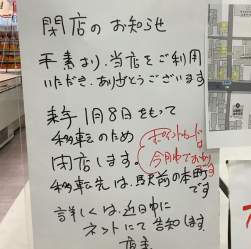 閉店のお知らせ
平素より、当店をご利用
いただき、ありがとうございます
来年1月8日をもって
移転のため
閉店します。
ポイントカードは
今月中で
移転先は、駅前の本町
です
詳しくは、近日中に
ネットにて告知します。
店主